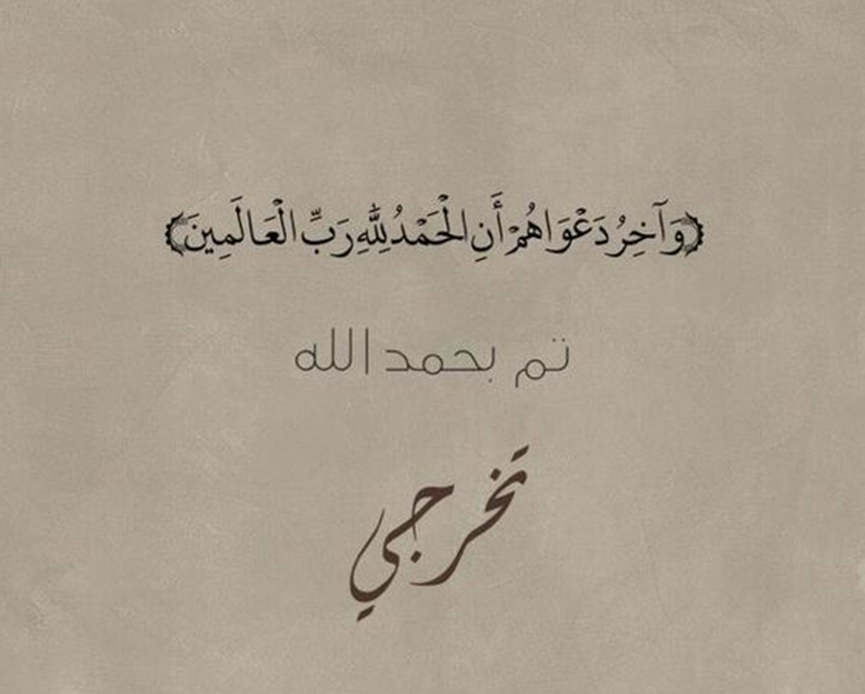 ﴿وَآخِرُ دَعْوَاهُمْ أَنِ الْحَمْدُ لِلَّهِ رَبِّ الْعَالَمِينَ﴾
تم بحمد الله
تخرجي